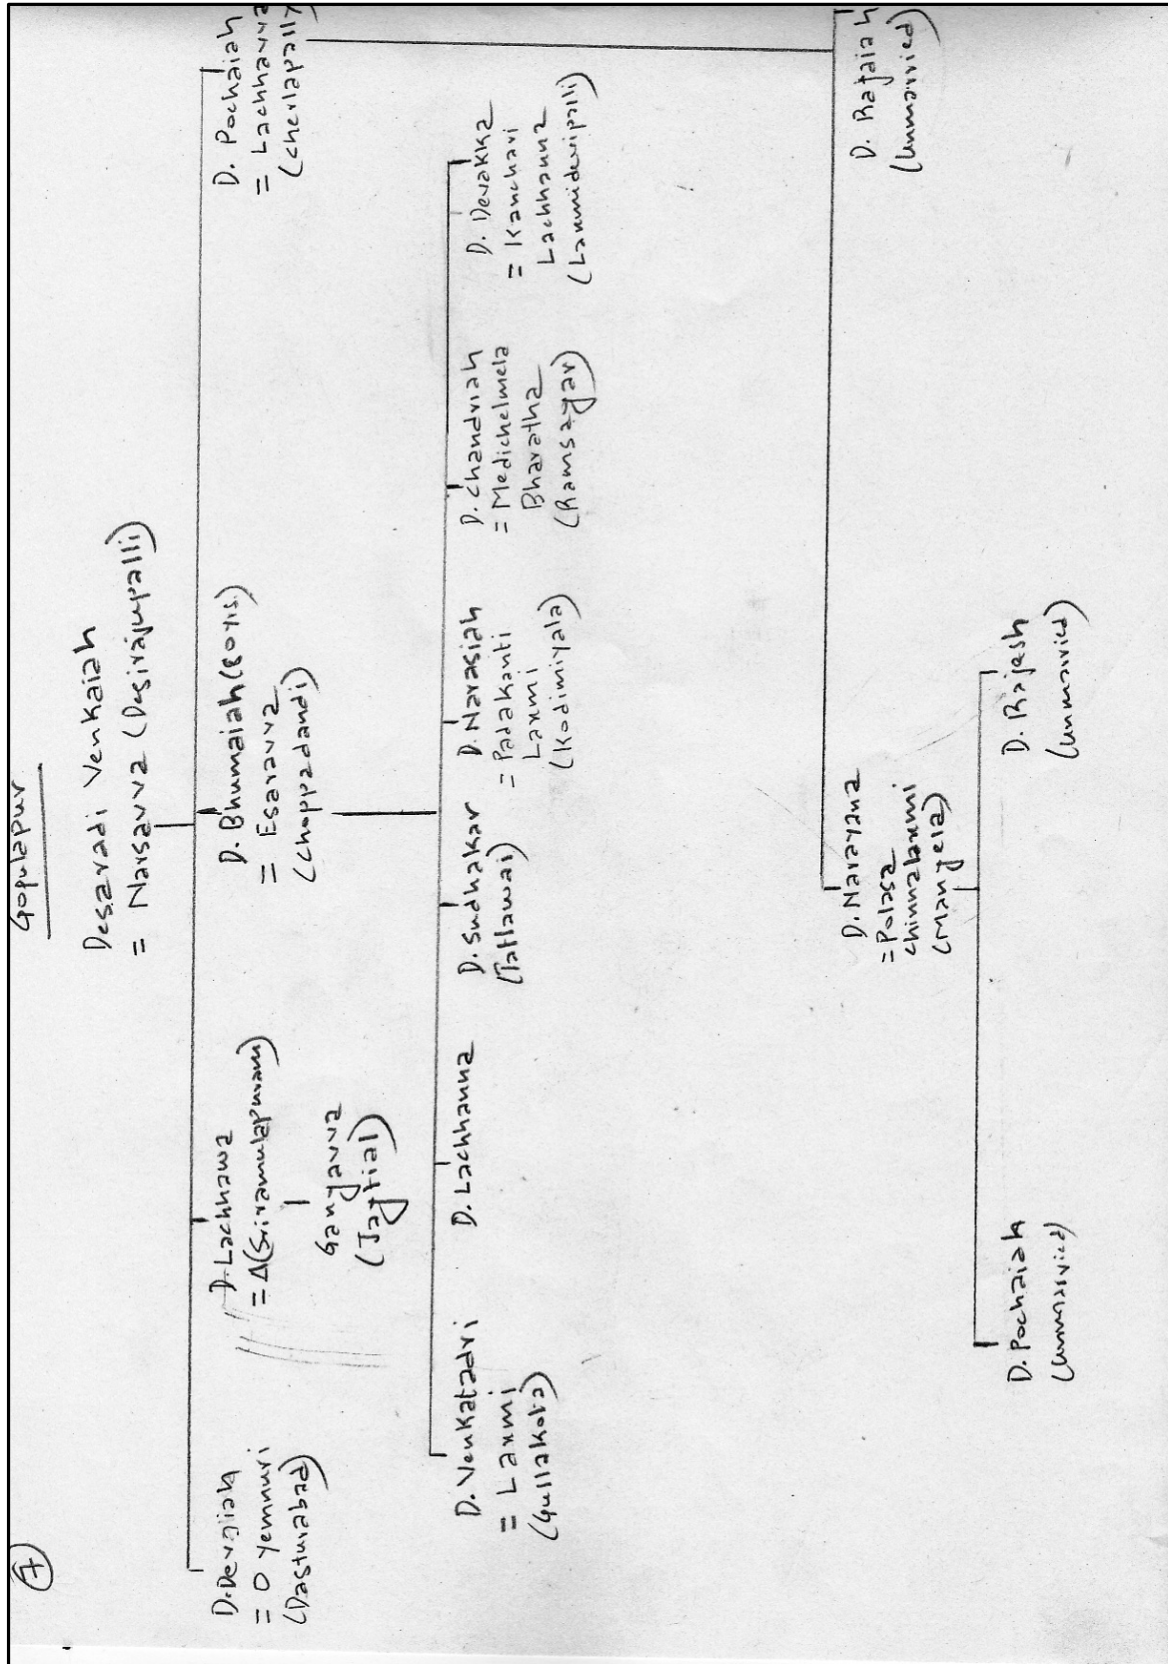 7
Gopulapur
Desaradi Venkaiah
= Narsavva (Desirajupalli)
D. Devaiah
= O Yemnuri
(Dasturabad)
D. Lachhawa
= Δ(Sriramulapuram)
Gangavva
(Jagtial)
D. Bhumaiah (80 yrs.)
= Esaravva
(Choppadandi)
D. Pochaiah
= Lachhavva
(Cherlapally)
D. Venkatadri
= Laxmi
(Gullakota)
D. Lachhanna
D. Sudhakar
(Tatlawai)
D. Narasiah
= Padakanti
Laxmi
(Kodimiyala)
D. Chandriah
= Medichelmela
Bharatha
(Ramsagar)
D. Devakka
= Kanchari
Lachhanna
(Laxmidevipalli)
D. Narayana
= Polasa
Chinnalaxmi
(Mangela)
D. Rajaiah
(Unmarried)
D. Pochaiah
(Unmarried)
D. Rajesh
(Unmarried)